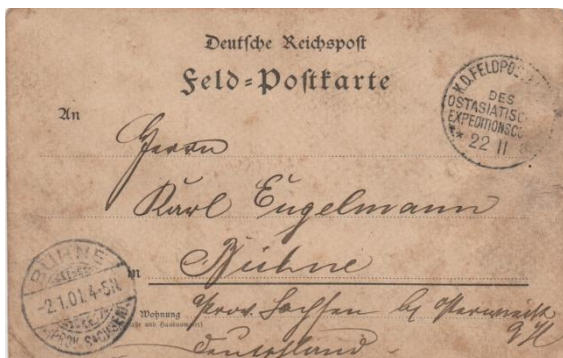 Deutsche Reichspost
Feld=Postkarte
K.D. FELDPOST
DES
OSTASIATISC
EXPEDITIONSCO
* 22 11
An
Herrn
Karl Engelmann
in Bühne
BÜHNE
-2.1.01. 4-5N.
(PROV. SACHSEN)
Wohnung
(Straße und Hausnummer)
Prov. Sachsen
Deutschland.